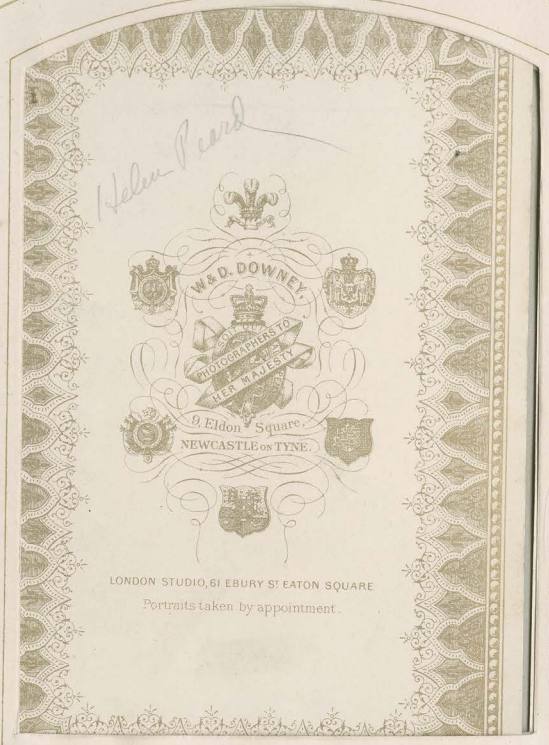 Helen Peard
W & D. DOWNEY,
PHOTOGRAPHERS TO
HER MAJESTY
9, Eldon Square,
NEWCASTLE ON TYNE.
LONDON STUDIO, 61 EBURY ST EATON SQUARE
Portraits taken by appointment.